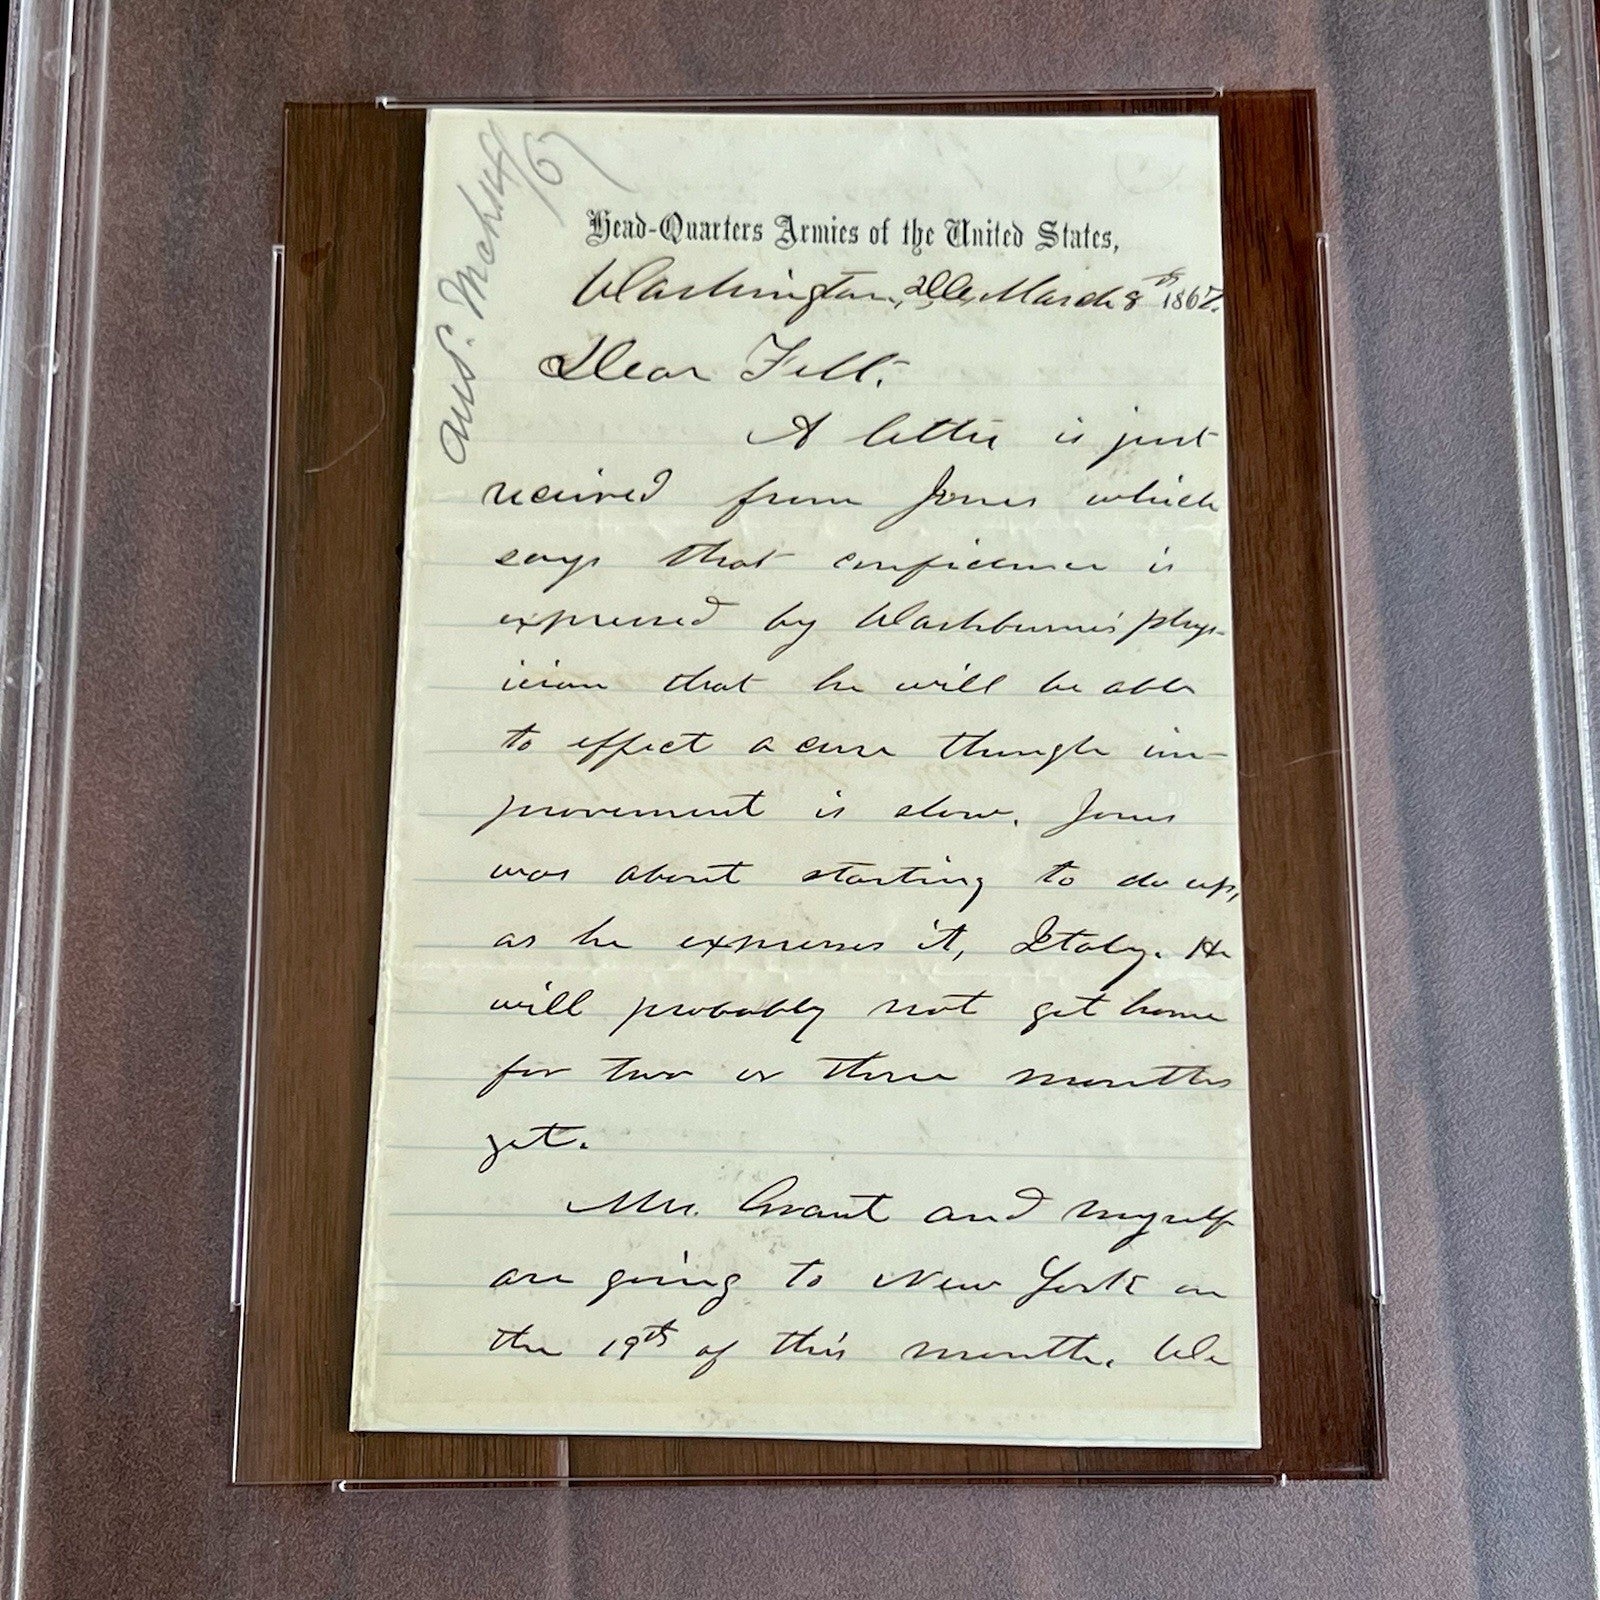 Ans. Mch
/67
Head-Quarters Armies of the United States,
Washington, D.C., March 8th 1867.
Dear Felt;
A letter is just
received from Jones which
says that confidence is
expressed by Washburne's phys-
ician that he will be able
to effect a cure though im-
provement is slow. Jones
was about starting to do up,
as he expresses it, Italy. He
will probably not get home
for two or three months
yet.
Mrs. Grant and myself
are going to New York on
the 19th of this month. We